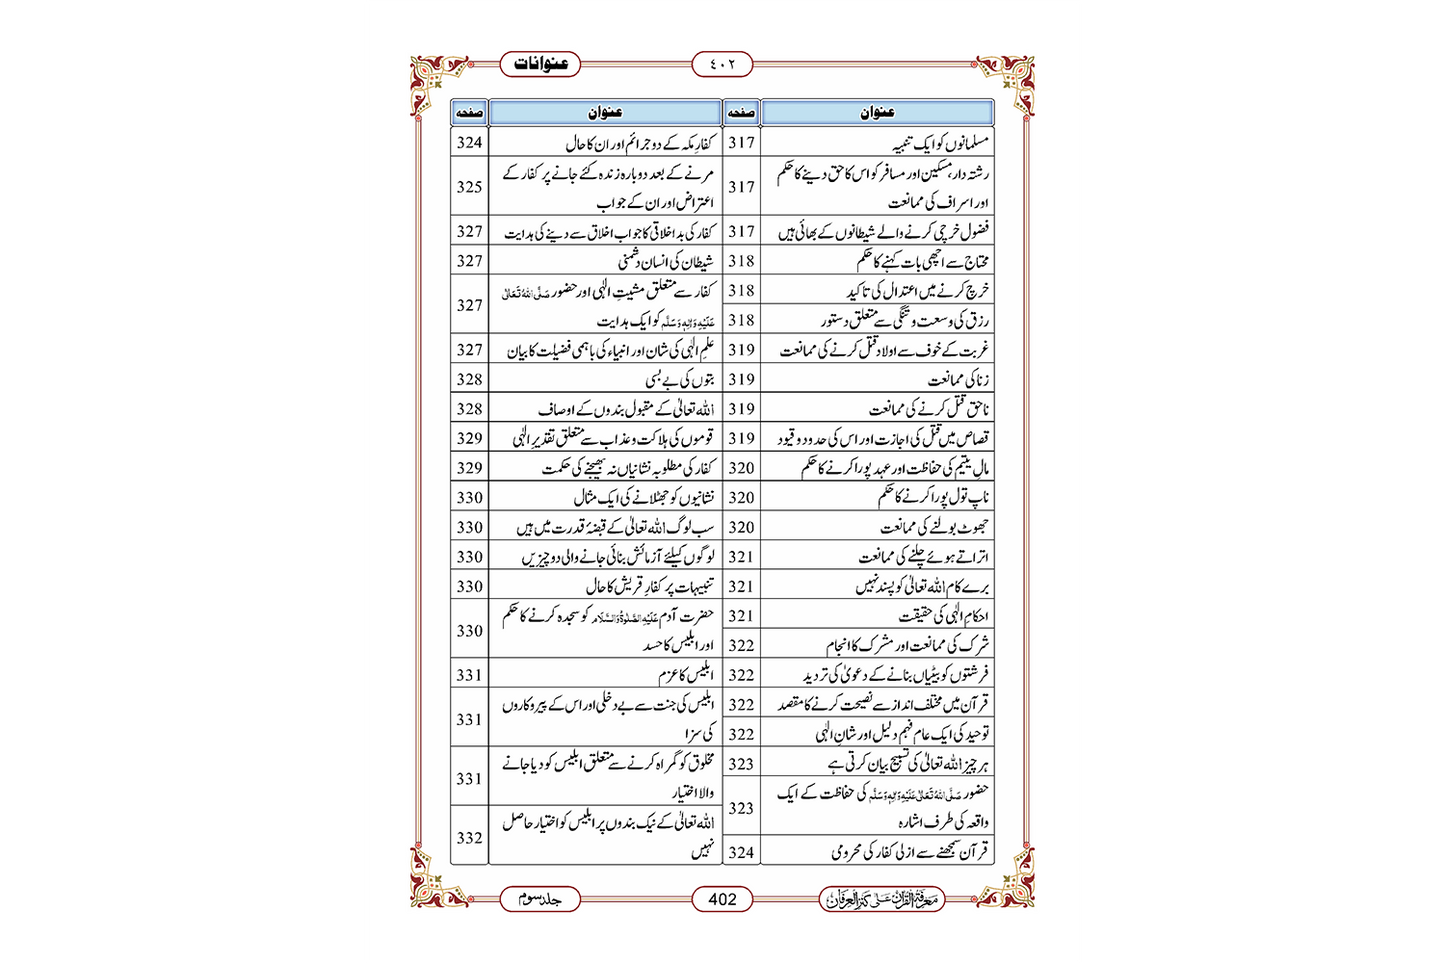 عنوانات
٤٠٢
عنوان صفحه
مسلمانوں کو ایک تنبیہ 317
رشتہ دار، مسکین اور مسافر کو اس کا حق دینے کا حکم
اور اسراف کی ممانعت 317
فضول خرچی کرنے والے شیطانوں کے بھائی ہیں 317
محتاج سے اچھی بات کہنے کا حکم 318
خرچ کرنے میں اعتدال کی تاکید 318
رزق کی وسعت و تنگی سے متعلق دستور 318
غربت کے خوف سے اولاد قتل کرنے کی ممانعت 319
زنا کی ممانعت 319
ناحق قتل کرنے کی ممانعت 319
قصاص میں قتل کی اجازت اور اس کی حدود و قیود 319
مالِ یتیم کی حفاظت اور عہد پورا کرنے کا حکم 320
ناپ تول پورا کرنے کا حکم 320
جھوٹ بولنے کی ممانعت 320
اتراتے ہوئے چلنے کی ممانعت 321
برے کام اللہ تعالیٰ کو پسند نہیں 321
احکامِ الٰہی کی حقیقت 321
شرک کی ممانعت اور مشرک کا انجام 322
فرشتوں کو بیٹیاں بنانے کے دعویٰ کی تردید 322
قرآن میں مختلف انداز سے نصیحت کرنے کا مقصد 322
توحید کی ایک عام فہم دلیل اور شانِ الٰہی 322
ہر چیز اللہ تعالیٰ کی تسبیح بیان کرتی ہے 323
حضور صَلَّی اللہُ تَعَالٰی عَلَیْہِ وَاٰلِہٖ وَسَلَّم کی حفاظت کے ایک
واقعہ کی طرف اشارہ 323
قرآن سمجھنے سے ازلی کفار کی محرومی 324
عنوان صفحه
کفارِ مکہ کے دو جرائم اور ان کا حال 324
مرنے کے بعد دوبارہ زندہ کئے جانے پر کفار کے
اعتراض اور ان کے جواب 325
کفار کی بداخلاقی کا جواب اخلاق سے دینے کی ہدایت 327
شیطان کی انسان دشمنی 327
کفار سے متعلق مشیتِ الٰہی اور حضور صَلَّی اللہُ تَعَالٰی
عَلَیْہِ وَاٰلِہٖ وَسَلَّم کو ایک ہدایت 327
علمِ الٰہی کی شان اور انبیاء کی باہمی فضیلت کا بیان 327
بتوں کی بے بسی 328
اللہ تعالیٰ کے مقبول بندوں کے اوصاف 328
قوموں کی ہلاکت و عذاب سے متعلق تقدیرِ الٰہی 329
کفار کی مطلوبہ نشانیاں نہ بھیجنے کی حکمت 329
نشانیوں کو جھٹلانے کی ایک مثال 330
سب لوگ اللہ تعالیٰ کے قبضۂ قدرت میں ہیں 330
لوگوں کیلئے آزمائش بنائی جانے والی دو چیزیں 330
تنبیہات پر کفارِ قریش کا حال 330
حضرت آدم عَلَیْہِ الصَّلٰوۃُ وَالسَّلَام کو سجدہ کرنے کا حکم
اور ابلیس کا حسد 330
ابلیس کا عزم 331
ابلیس کی جنت سے بے دخلی اور اس کے پیروکاروں
کی سزا 331
مخلوق کو گمراہ کرنے سے متعلق ابلیس کو دیا جانے
والا اختیار 331
اللہ تعالیٰ کے نیک بندوں پر ابلیس کو اختیار حاصل
نہیں 332
معرفۃ القرآن علی کنز العرفان
402
جلد سوم